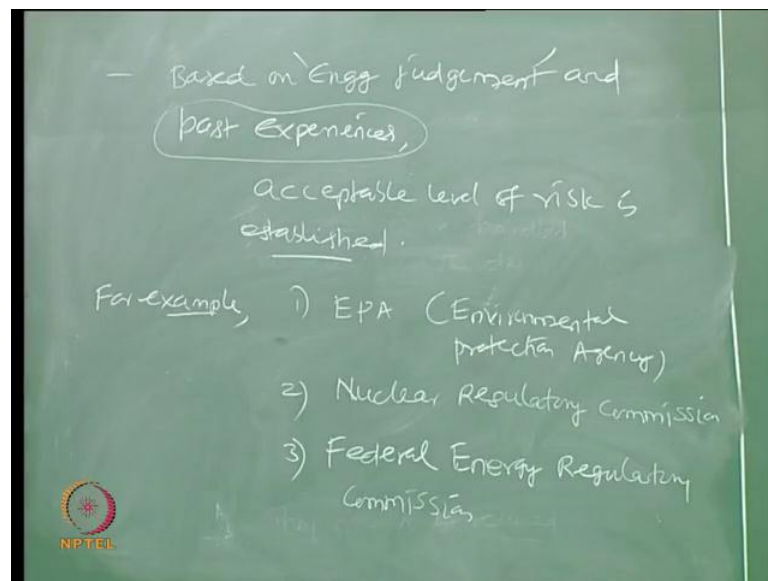 — Based on "Engg judgement" and
past experiences,
acceptable level of risk is
established.
For example, 1) EPA (Environmental
protection Agency)
2) Nuclear Regulatory Commission
3) Federal Energy Regulatory
Commission
NPTEL